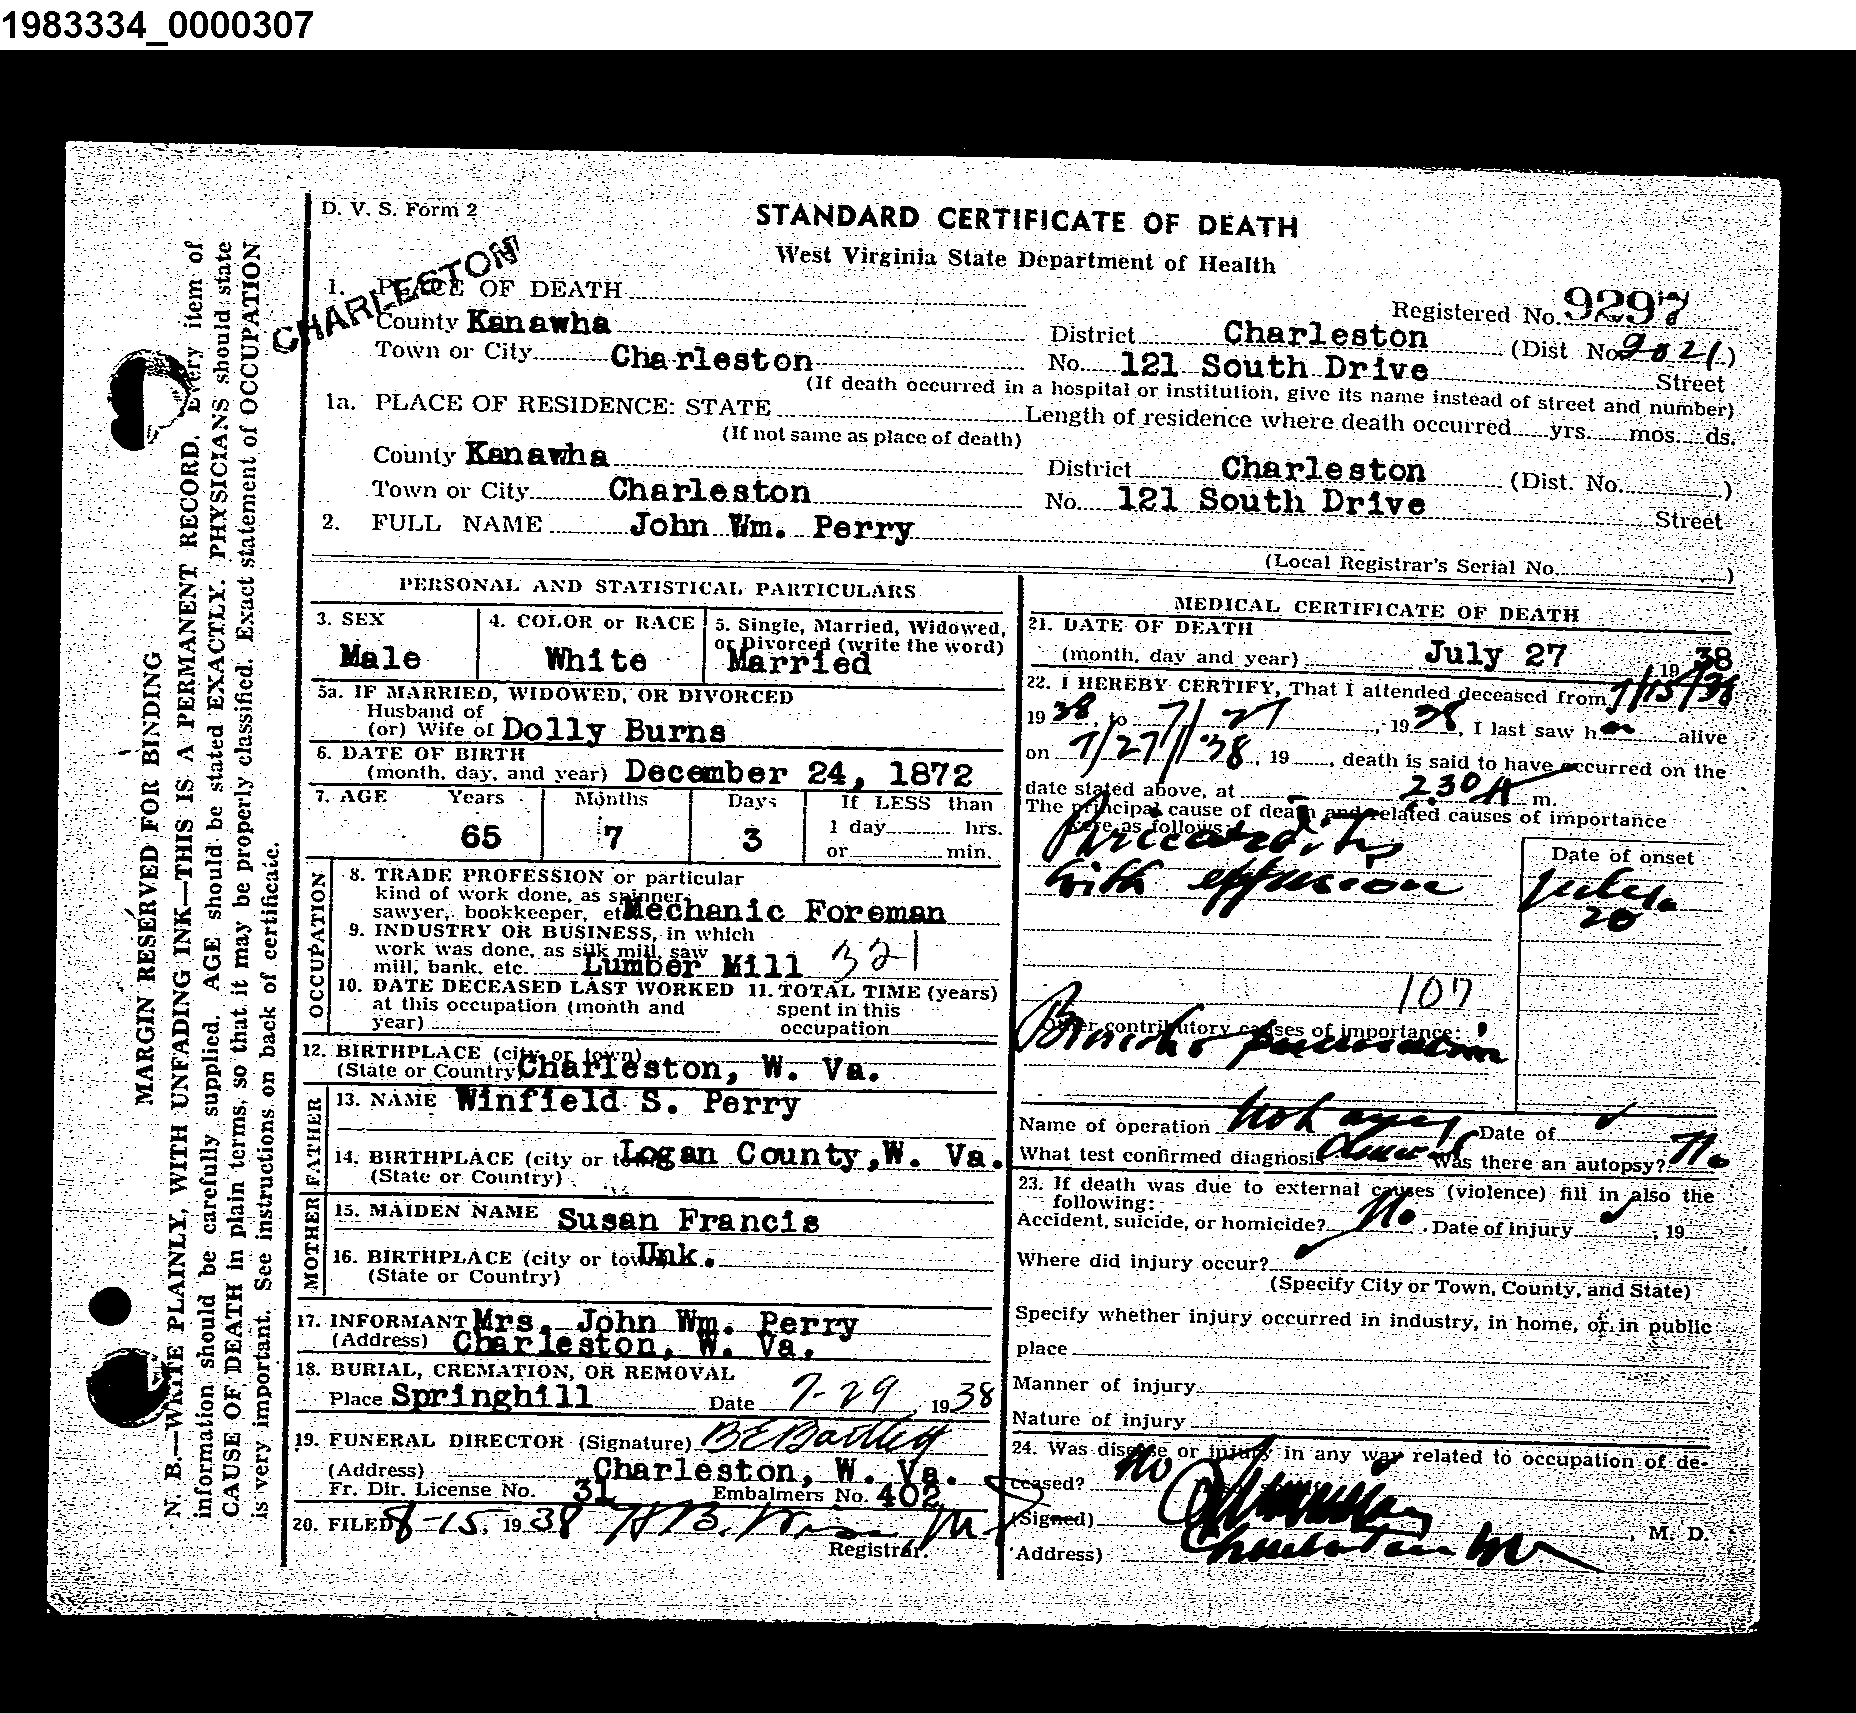 1983334_0000307
D. V. S. Form 2
STANDARD CERTIFICATE OF DEATH
West Virginia State Department of Health
CHARLESTON
1. PLACE OF DEATH
Registered No. 9297
County Kanawha
District Charleston (Dist No. 2021.)
Town or City Charleston
No. 121 South Drive Street
(If death occurred in a hospital or institution, give its name instead of street and number)
1a. PLACE OF RESIDENCE: STATE
Length of residence where death occurred yrs. mos. ds.
(If not same as place of death)
County Kanawha
District Charleston (Dist. No. )
Town or City Charleston
No. 121 South Drive Street
2. FULL NAME John Wm. Perry
(Local Registrar's Serial No. )
PERSONAL AND STATISTICAL PARTICULARS
3. SEX
Male
4. COLOR or RACE
White
5. Single, Married, Widowed,
or Divorced (write the word)
Married
5a. IF MARRIED, WIDOWED, OR DIVORCED
Husband of
(or) Wife of Dolly Burns
6. DATE OF BIRTH
(month, day, and year) December 24, 1872
7. AGE Years Months Days If LESS than
1 day hrs.
65 7 3
or min.
OCCUPATION
8. TRADE PROFESSION or particular
kind of work done, as spinner,
sawyer, bookkeeper, etc. Mechanic Foreman
9. INDUSTRY OR BUSINESS, in which
work was done, as silk mill, saw
mill, bank, etc. Lumber Mill 321
10. DATE DECEASED LAST WORKED
at this occupation (month and
year)
11. TOTAL TIME (years)
spent in this
occupation
12. BIRTHPLACE (city or town)
(State or Country) Charleston, W. Va.
FATHER
13. NAME Winfield S. Perry
14. BIRTHPLACE (city or town) Logan County, W. Va.
(State or Country)
MOTHER
15. MAIDEN NAME Susan Francis
16. BIRTHPLACE (city or town) Unk.
(State or Country)
17. INFORMANT Mrs. John Wm. Perry
(Address) Charleston, W. Va.
18. BURIAL, CREMATION, OR REMOVAL
Place Springhill Date 7-29, 1938
19. FUNERAL DIRECTOR (Signature) B E Bartley
(Address) Charleston, W. Va.
Fr. Dir. License No. 31 Embalmers No. 402
20. FILED 8-15, 1938 H B.
Registrar.
MEDICAL CERTIFICATE OF DEATH
21. DATE OF DEATH
(month, day and year) July 27 1938
22. I HEREBY CERTIFY, That I attended deceased from 7/15/38
1938, to 7/27, 1938, I last saw h alive
on 7/27/38, 19 , death is said to have occurred on the
date stated above, at 2.30 A m.
The principal cause of death and related causes of importance
were as follows:
Pericarditis
with effusion
Date of onset
July.
20
107
Other contributory causes of importance:
Broncho pneumonia
Name of operation Date of
What test confirmed diagnosis Was there an autopsy? No
23. If death was due to external causes (violence) fill in also the
following:
Accident, suicide, or homicide? No. Date of injury , 19
Where did injury occur?
(Specify City or Town, County, and State)
Specify whether injury occurred in industry, in home, or in public
place
Manner of injury
Nature of injury
24. Was disease or injury in any way related to occupation of de-
ceased? No
(Signed) , M. D.
(Address) Charleston
MARGIN RESERVED FOR BINDING
N. B.—WRITE PLAINLY, WITH UNFADING INK—THIS IS A PERMANENT RECORD. Every item of
information should be carefully supplied. AGE should be stated EXACTLY. PHYSICIANS should state
CAUSE OF DEATH in plain terms, so that it may be properly classified. Exact statement of OCCUPATION
is very important. See instructions on back of certificate.